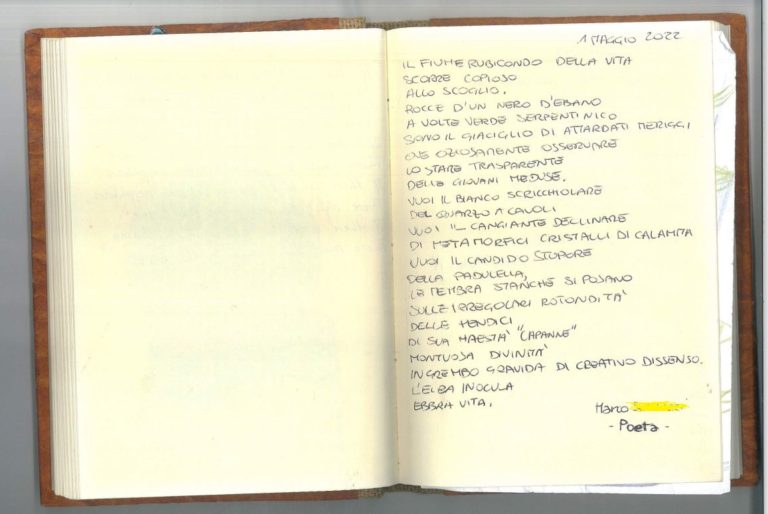 1 MAGGIO 2022
IL FIUME RUBICONDO DELLA VITA
SCORRE COPIOSO
ALLO SCOGLIO.
ROCCE D'UN NERO D'EBANO
A VOLTE VERDE SERPENTINICO
SONO IL GIACIGLIO DI ATTARDATI MERIGGI
OVE OZIOSAMENTE OSSERVARE
LO STARE TRASPARENTE
DELLE GIOVANI MEDUSE.
VUOI IL BIANCO SCRICCHIOLARE
DEL QUARZO A CAVOLI
VUOI IL CANGIANTE DECLINARE
DI METAMORFICI CRISTALLI DI CALAMITA
VUOI IL CANDIDO STUPORE
DELLA PADULELLA,
LE MEMBRA STANCHE SI POSANO
SULLE IRREGOLARI ROTONDITA'
DELLE PENDICI
DI SUA MAESTA' "CAPANNE"
MONTUOSA DIVINITA'
IN GREMBO GRAVIDA DI CREATIVO DISSENSO.
L'ELBA INOCULA
EBBRA VITA.
Marco
- Poeta -